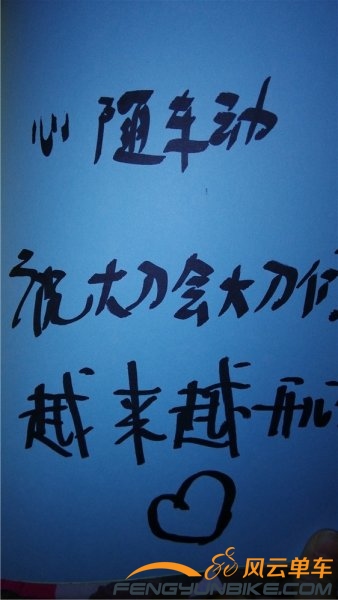 心随车动
祝大刀会大刀们
越来越
风云单车
FENGYUNBIKE.COM